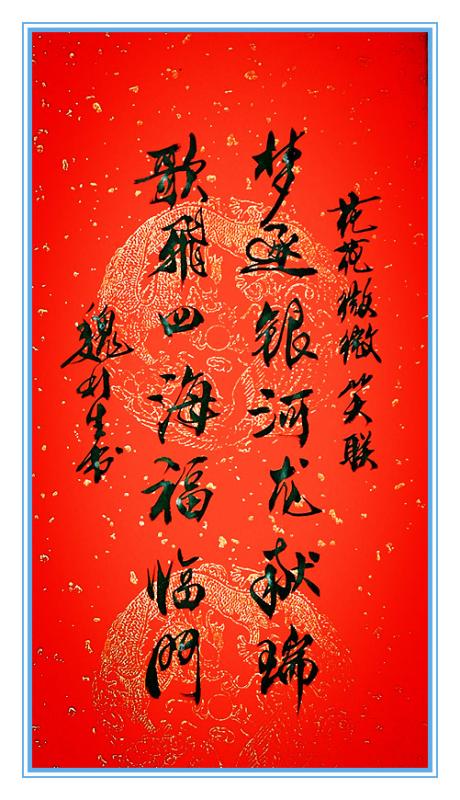 花花微微笑联
梦逐银河龙献瑞
歌飞四海福临门
魏利生书